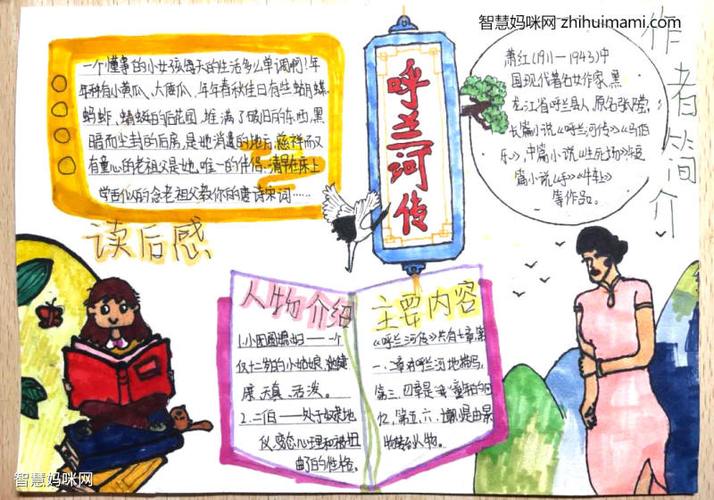 智慧妈咪网 zhihuimami.com
一个懂事的小女孩每天的生活多么单调啊!年
年种有小黄瓜、大南瓜、年年春秋佳日有些蛄月蝶
蚂蚱、蜻蜓的后花园、堆满了破旧的东西,黑
暗而尘封的后房,是她消遣的地方,慈祥而又
有童心的老祖父是她唯一的伴侣,清早在床上
学舌似的念老祖父教你的唐诗宋词……
读后感
呼兰河传
作者简介
萧红(1911—1943)中
国现代著名女作家,黑
龙江省呼兰县人,原名张
长篇小说《呼兰河传》《马伯
乐》,中篇小说《生死场》短
篇小说《手》《牛车上》
等作品。
人物介绍
1.小团圆媳妇——一个
仅十二岁的小姑娘,她健
康、天真、活泼。
2.二伯——处于奴隶地
位,变态心理和被扭
曲了的性格。
主要内容
《呼兰河传》共有七章,第
一、二章对呼兰河地描写,
第三、四章是"我"童年的回
忆,第五、六、七章是由景
物转入人物。
智慧妈咪网